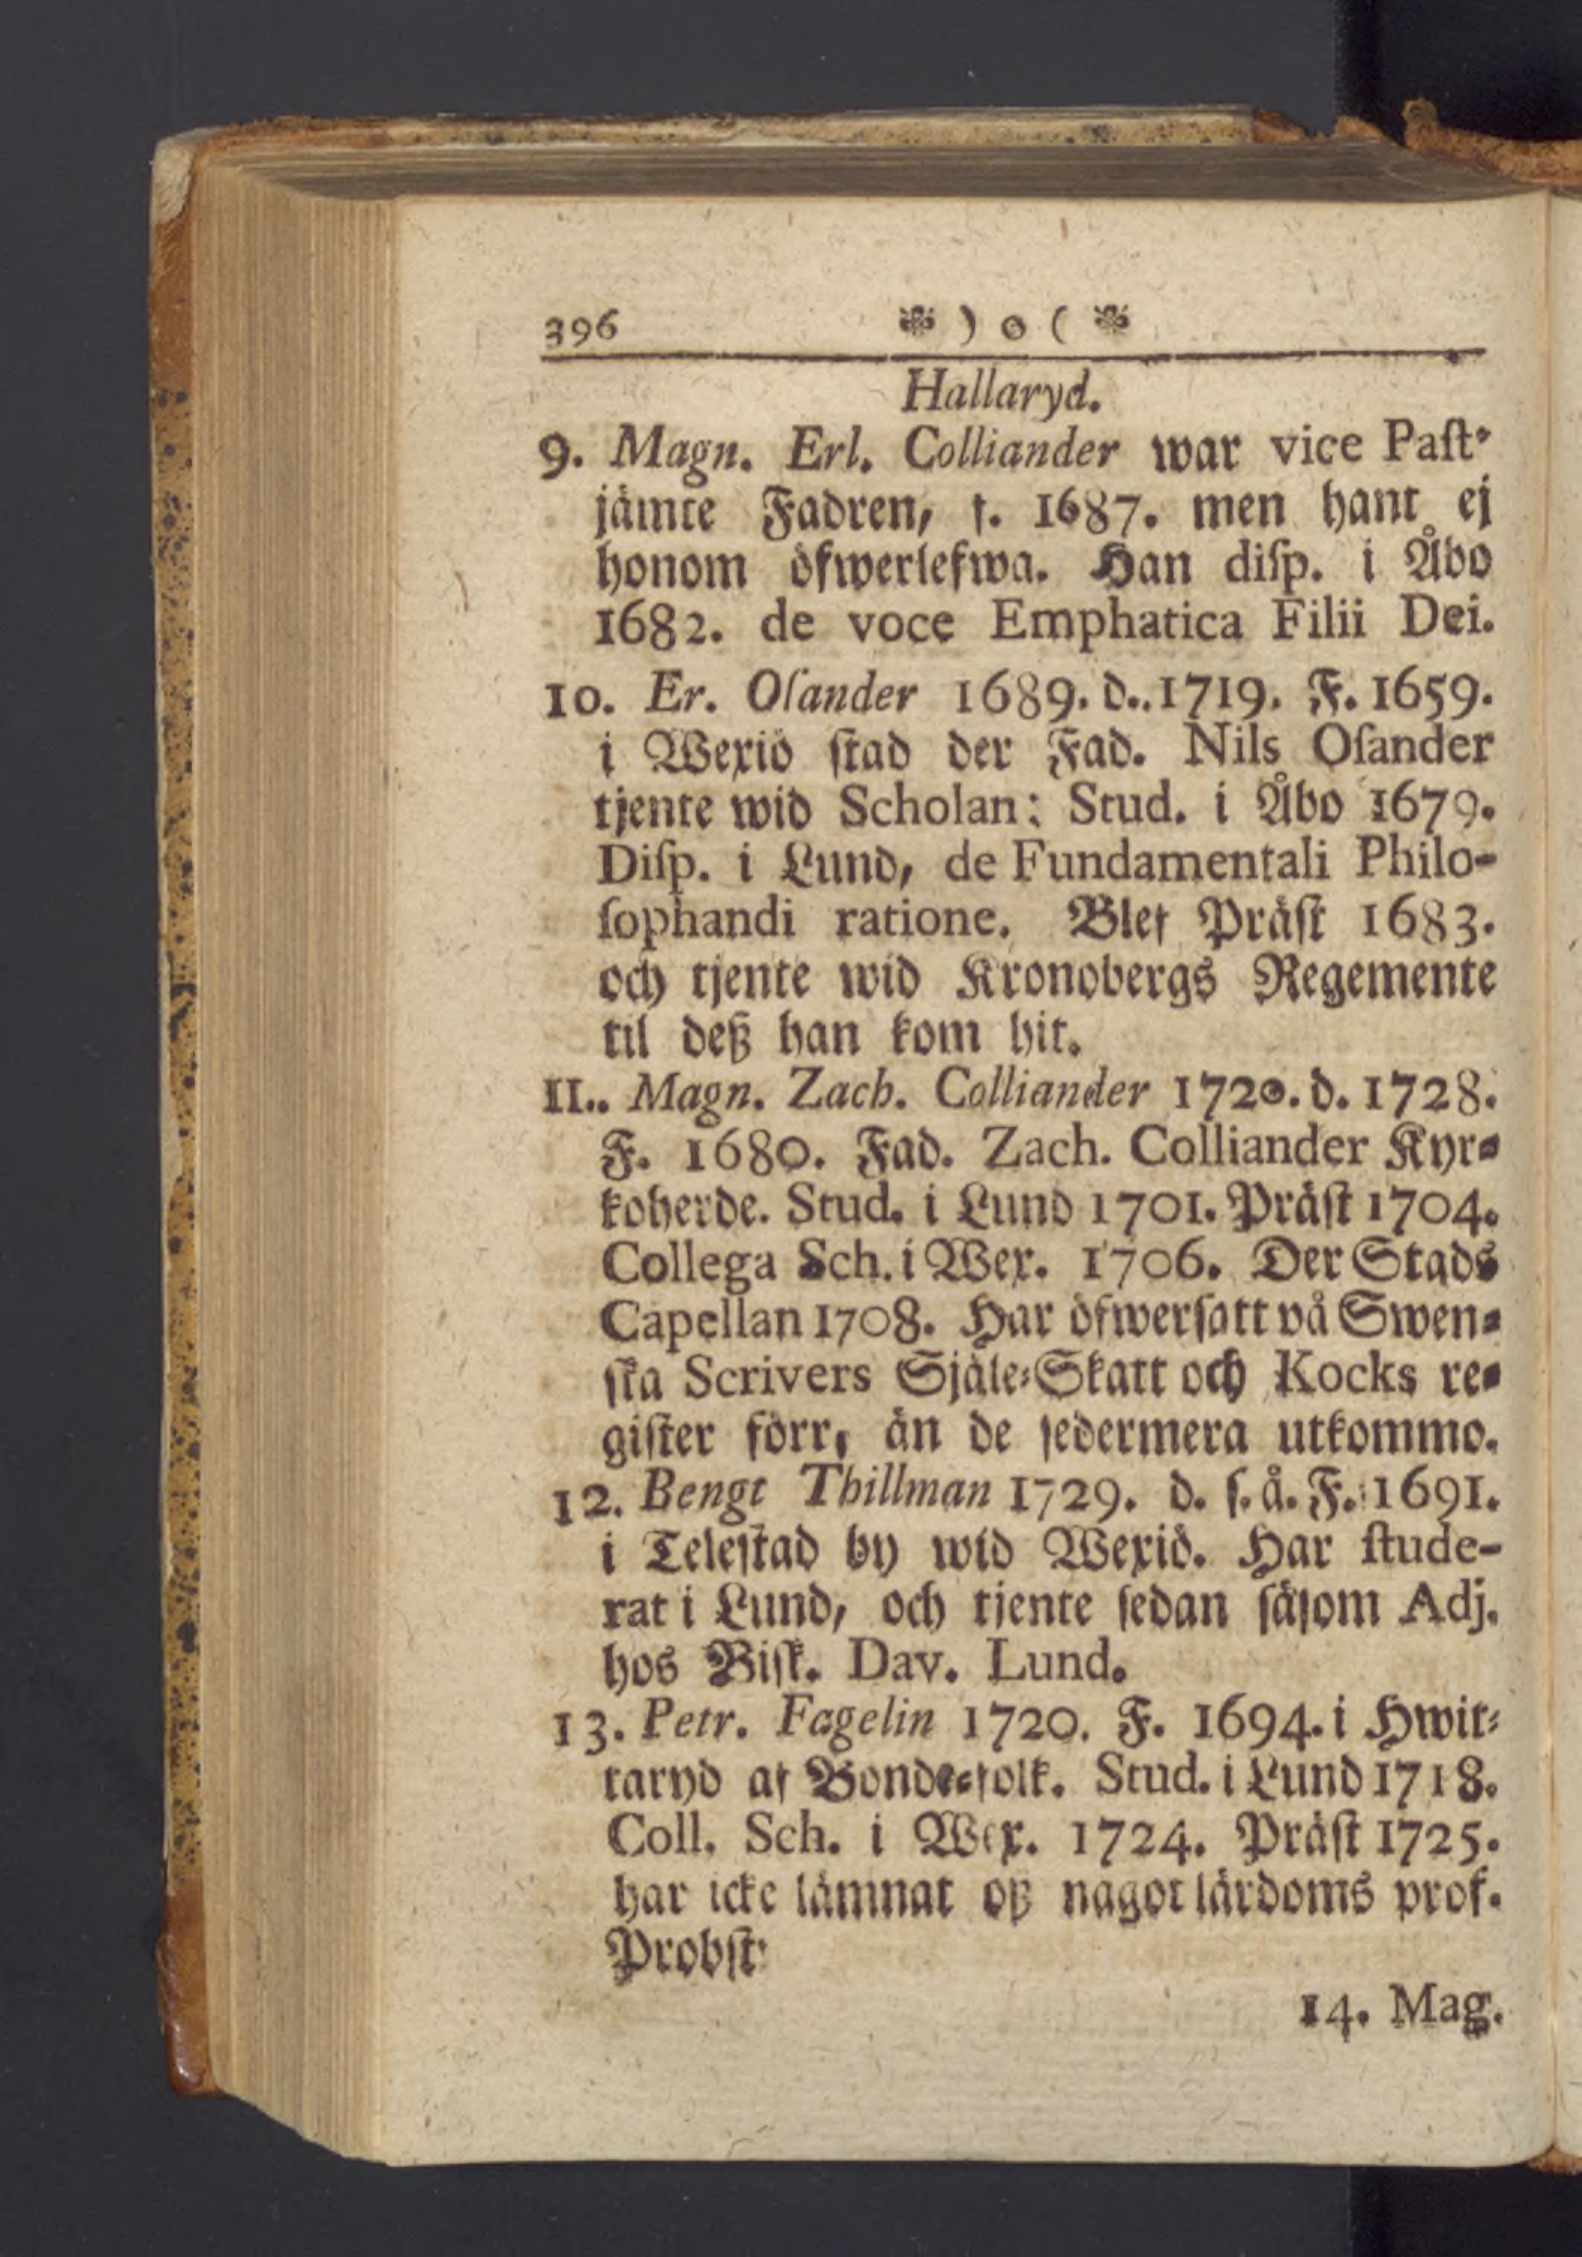 396 ❧ ) o ( ❧
Hallaryd.
9. Magn. Erl. Colliander war vice Past.
jämte Fadren, f. 1687. men hant ej
honom öfwerlefwa. Han disp. i Åbo
1682. de voce Emphatica Filii Dei.
10. Er. Osander 1689. d..1719. F. 1659.
i Wexiö stad der Fad. Nils Osander
tjente wid Scholan; Stud. i Åbo 1679.
Disp. i Lund, de Fundamentali Philo-
sophandi ratione. Blef Präst 1683.
och tjente wid Kronobergs Regemente
til deß han kom hit.
11.. Magn. Zach. Colliander 1720. d. 1728.
F. 1680. Fad. Zach. Colliander Kyr-
koherde. Stud. i Lund 1701. Präst 1704.
Collega Sch. i Wex. 1706. Der Stads
Capellan 1708. Har öfwersatt på Swen-
ska Scrivers Själe-Skatt och Kocks re-
gister förr, än de sedermera utkommo.
12. Bengt Thillman 1729. d. s. å. F. 1691.
i Telestad by wid Wexiö. Har stude-
rat i Lund, och tjente sedan såsom Adj.
hos Bisk. Dav. Lund.
13. Petr. Fagelin 1720. F. 1694. i Hwit-
taryd af Bonde-folk. Stud. i Lund 1718.
Coll. Sch. i Wex. 1724. Präst 1725.
har icke lämnat oß nagot lärdoms prof.
Probst.
14. Mag.